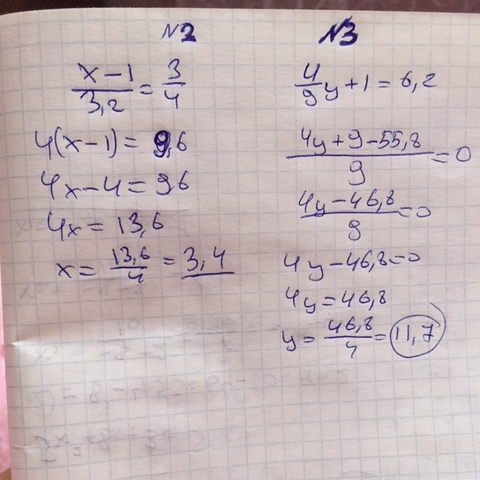 N2
x-1/3,2 = 3/4
4(x-1) = 9,6
4x-4 = 9,6
4x = 13,6
x = 13,6/4 = 3,4
N3
4/9 y+1 = 6,2
4y+9-55,8/9 = 0
4y-46,8/9 = 0
4y-46,8=0
4y=46,8
y = 46,8/4 = 11,7